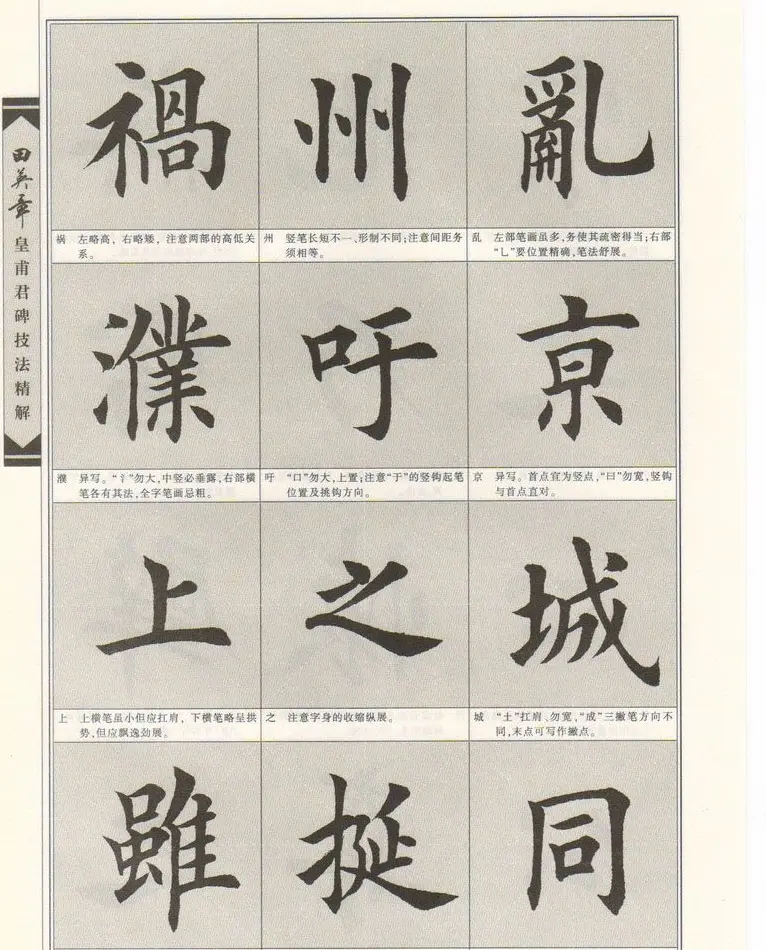 田英章
皇甫君碑技法精解
亂
乱 左部笔画虽多,务使其疏密得当;右部
“乚”要位置精确,笔法舒展。
京
京 异写。首点宜为竖点,“曰”勿宽,竖钩
与首点直对。
城
城 “土”扛肩、勿宽,“成”三撇笔方向不
同,末点可写作撇点。
同
州
州 竖笔长短不一、形制不同;注意间距务
须相等。
吁
吁 “口”勿大,上置;注意“于”的竖钩起笔
位置及挑钩方向。
之
之 注意字身的收缩纵展。
挺
禍
祸 左略高,右略矮,注意两部的高低关
系。
濮
濮 异写。“氵”勿大,中竖必垂露,右部横
笔各有其法,全字笔画忌粗。
上
上 上横笔虽小但应扛肩,下横笔略呈拱
势,但应飘逸劲展。
雖